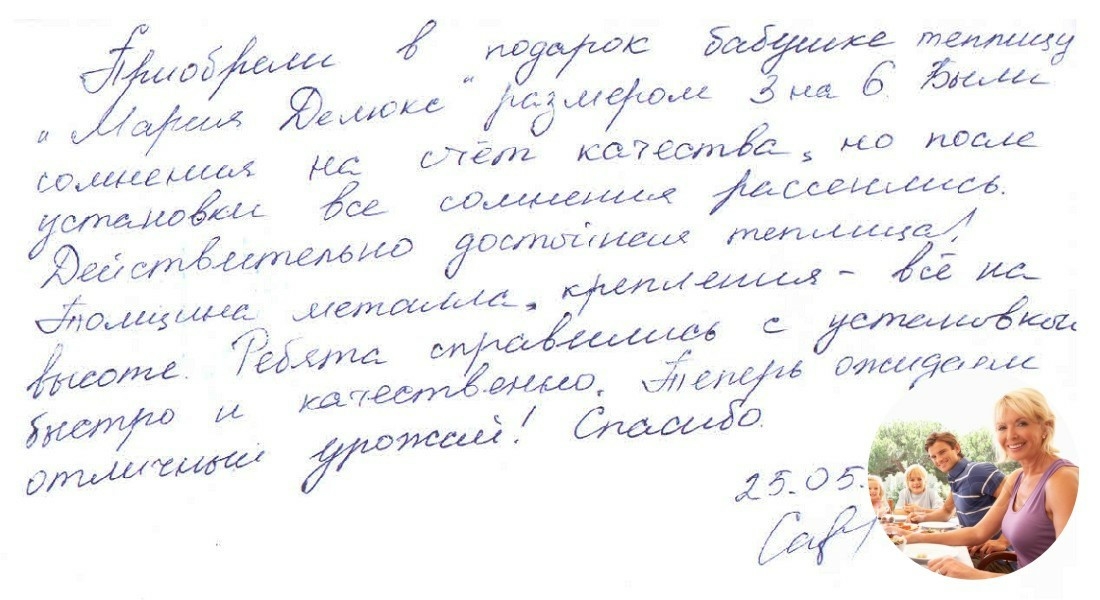 Приобрели в подарок бабушке теплицу
„Мария Делюкс“ размером 3 на 6. Были
сомнения на счёт качества, но после
установки все сомнения рассеялись.
Действительно достойная теплица!
Толщина металла, крепления - всё на
высоте. Ребята справились с установкой
быстро и качественно. Теперь ожидаем
отличный урожай! Спасибо.
25.05.